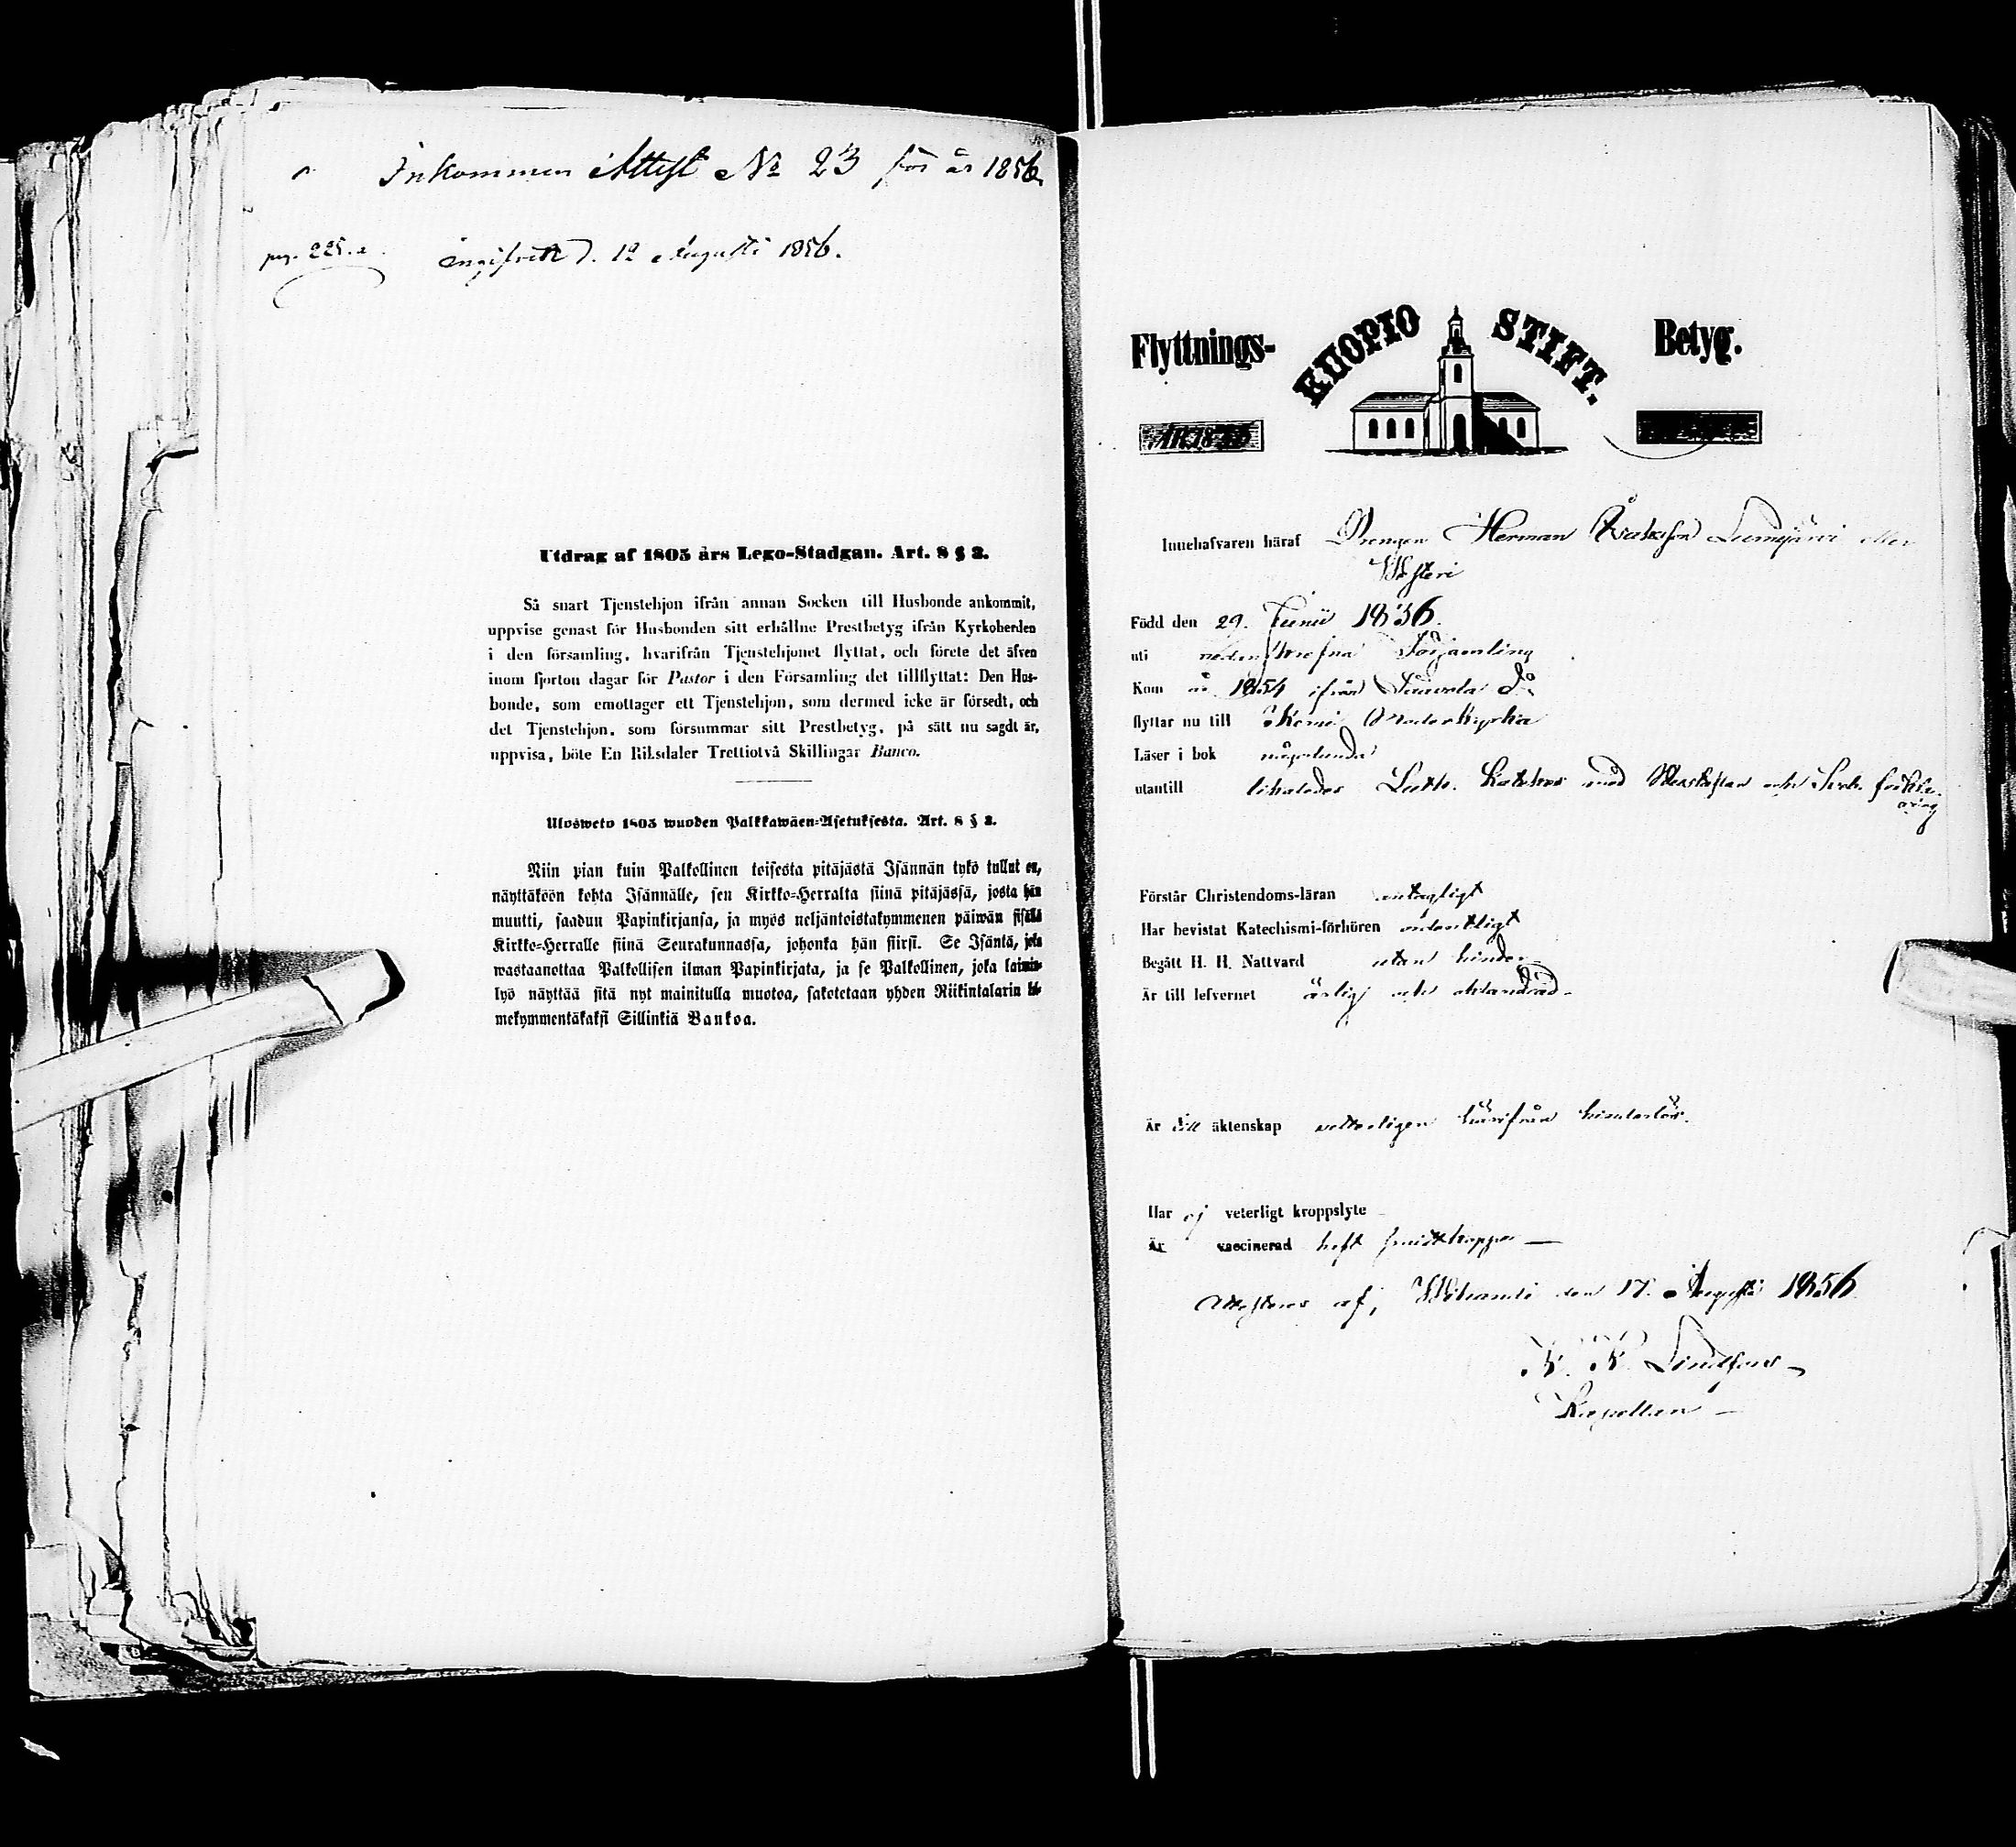 Inkommen Attest No 23 för år 1856.
pag. 225. Ingifvit d. 19 Augusti 1856.
Utdrag af 1805 års Lego-Stadgan. Art. 8 § 2.
Så snart Tjenstehjon ifrån annan Socken till Husbonde ankommit,
uppvise genast för Husbonden sitt erhållne Prestbetyg ifrån Kyrkoherden
i den församling, hvarifrån Tjenstehjonet flyttat, och förete det äfven
inom fjorton dagar för Pastor i den Församling det tillflyttat: Den Hus-
bonde, som emottager ett Tjenstehjon, som dermed icke är försedt, och
det Tjenstehjon, som försummar sitt Prestbetyg, på sätt nu sagdt är,
uppvisa, böte En Riksdaler Trettiotvå Skillingar Banco.
Ulosweto 1805 wuoden Palkkawäen-Asetuksesta. Art. 8 § 2.
Niin pian kuin Palkollinen toisesta pitäjästä Isännän tykö tullut on,
näyttäköön kohta Isännälle, sen Kirkko-Herralta siinä pitäjässä, josta hän
muutti, saadun Papinkirjansa, ja myös neljäntoistakymmenen päiwän sisällä
Kirkko-Herralle siinä Seurakunnassa, johonka hän siirsi. Se Isäntä, joka
wastaanottaa Palkollisen ilman Papinkirjata, ja se Palkollinen, joka laimin-
lyö näyttää sitä nyt mainitulla muotoa, sakotetaan yhden Riikintalarin kol-
mekymmentäkaksi Sillinkiä Bankoa.
Flyttnings- KUOPIO STIFT. Betyg.
Innehafvaren häraf Drengen Herman Lumijärvi eller
Född den 29. Junii 1836.
uti nedanskrefna Församling
Kom år 1854 ifrån
flyttar nu till Kemi Moderkyrka
Läser i bok någorlunda
utantill likaledes Luth. Kateches med och förkla-
ring
Förstår Christendoms-läran antagligt
Har bevistat Katechismi-förhören ordentligt
Begått H. H. Nattvard utan hinder
Är till lefvernet ärlig och oklandrad
Är till äktenskap vetterligen härifrån hinderlös.
Har ej veterligt kroppslyte
Är vaccinerad haft smittkoppor
Attesteras af, Wihanti den 17. Augusti 1856
Kapellan